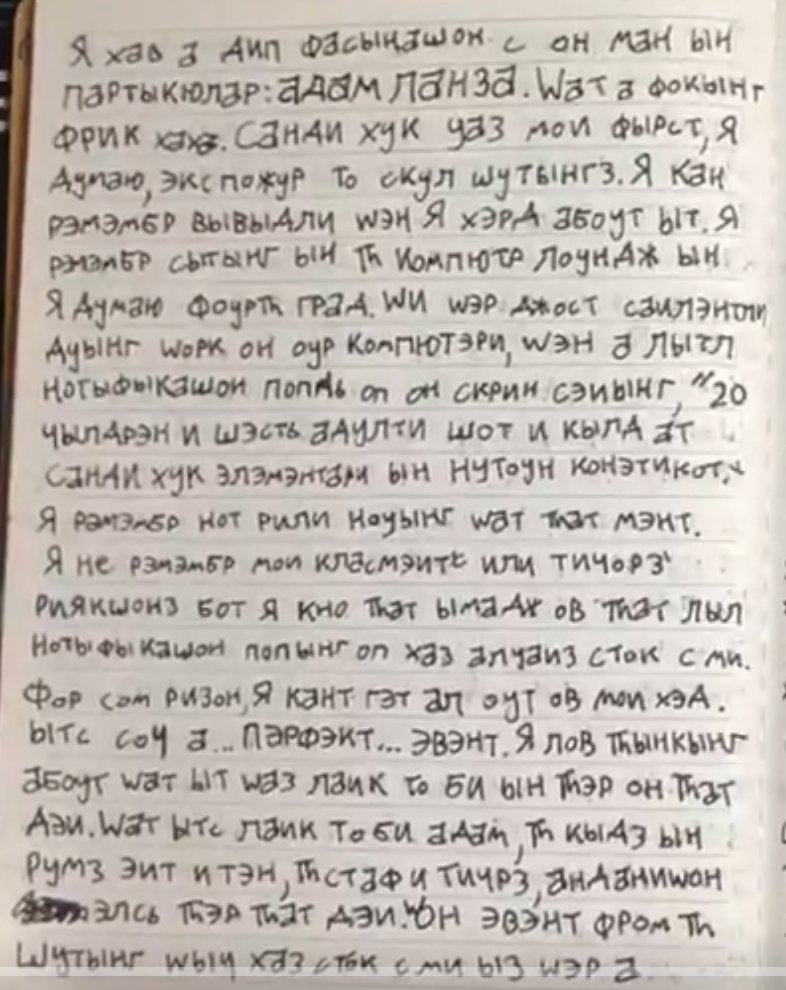 Я хав а дип фасынашон с он ман ын
партыкюлар: адам ланза. Wат а фокынг
фрик хаха. Санди хук уаз мои фырст, я
думаю, экспожур то скул шутынгз. Я кан
рэмэмбр вывыдли wэн я хэрд абоут ыт. Я
рэмэмбр сытынг ын Th компютр лоундж ын
я думаю фоурth град. Wи wэр джост саилэнтли
дуынг wорк он оур компютэри, wэн а лытл
нотыфыкашон попдь оп он скрин сэиынг, "20
чылдрэн и шэсть адулти шот и кылд ат
санди хук элэмэнтари ын нутоун конэтикот."
Я рэмэмбр нот рили ноуынг wат that мэнт.
Я не рэмэмбр мои класмэитс или тичорз'
рияктшонз бот я кно that ымадж ов that лыл
нотыфыкашон попынг оп хаз алуаиз сток с ми.
Фор сом ризон, я кант гэт ал оут ов мои хэд.
ытс соч а... парфэкт... эвэнт. Я лов thынкынг
абоут wат ыт wаз лаик то би ын thэр он that
дэи. Wат ытс лаик то би адам, th кыдз ын
румз эит и тэн, th стаф и тичрз, анданишон
элсь thэр that дэи. Он эвэнт фром th
шутынг wыч хаз сток с ми ыз wэр а